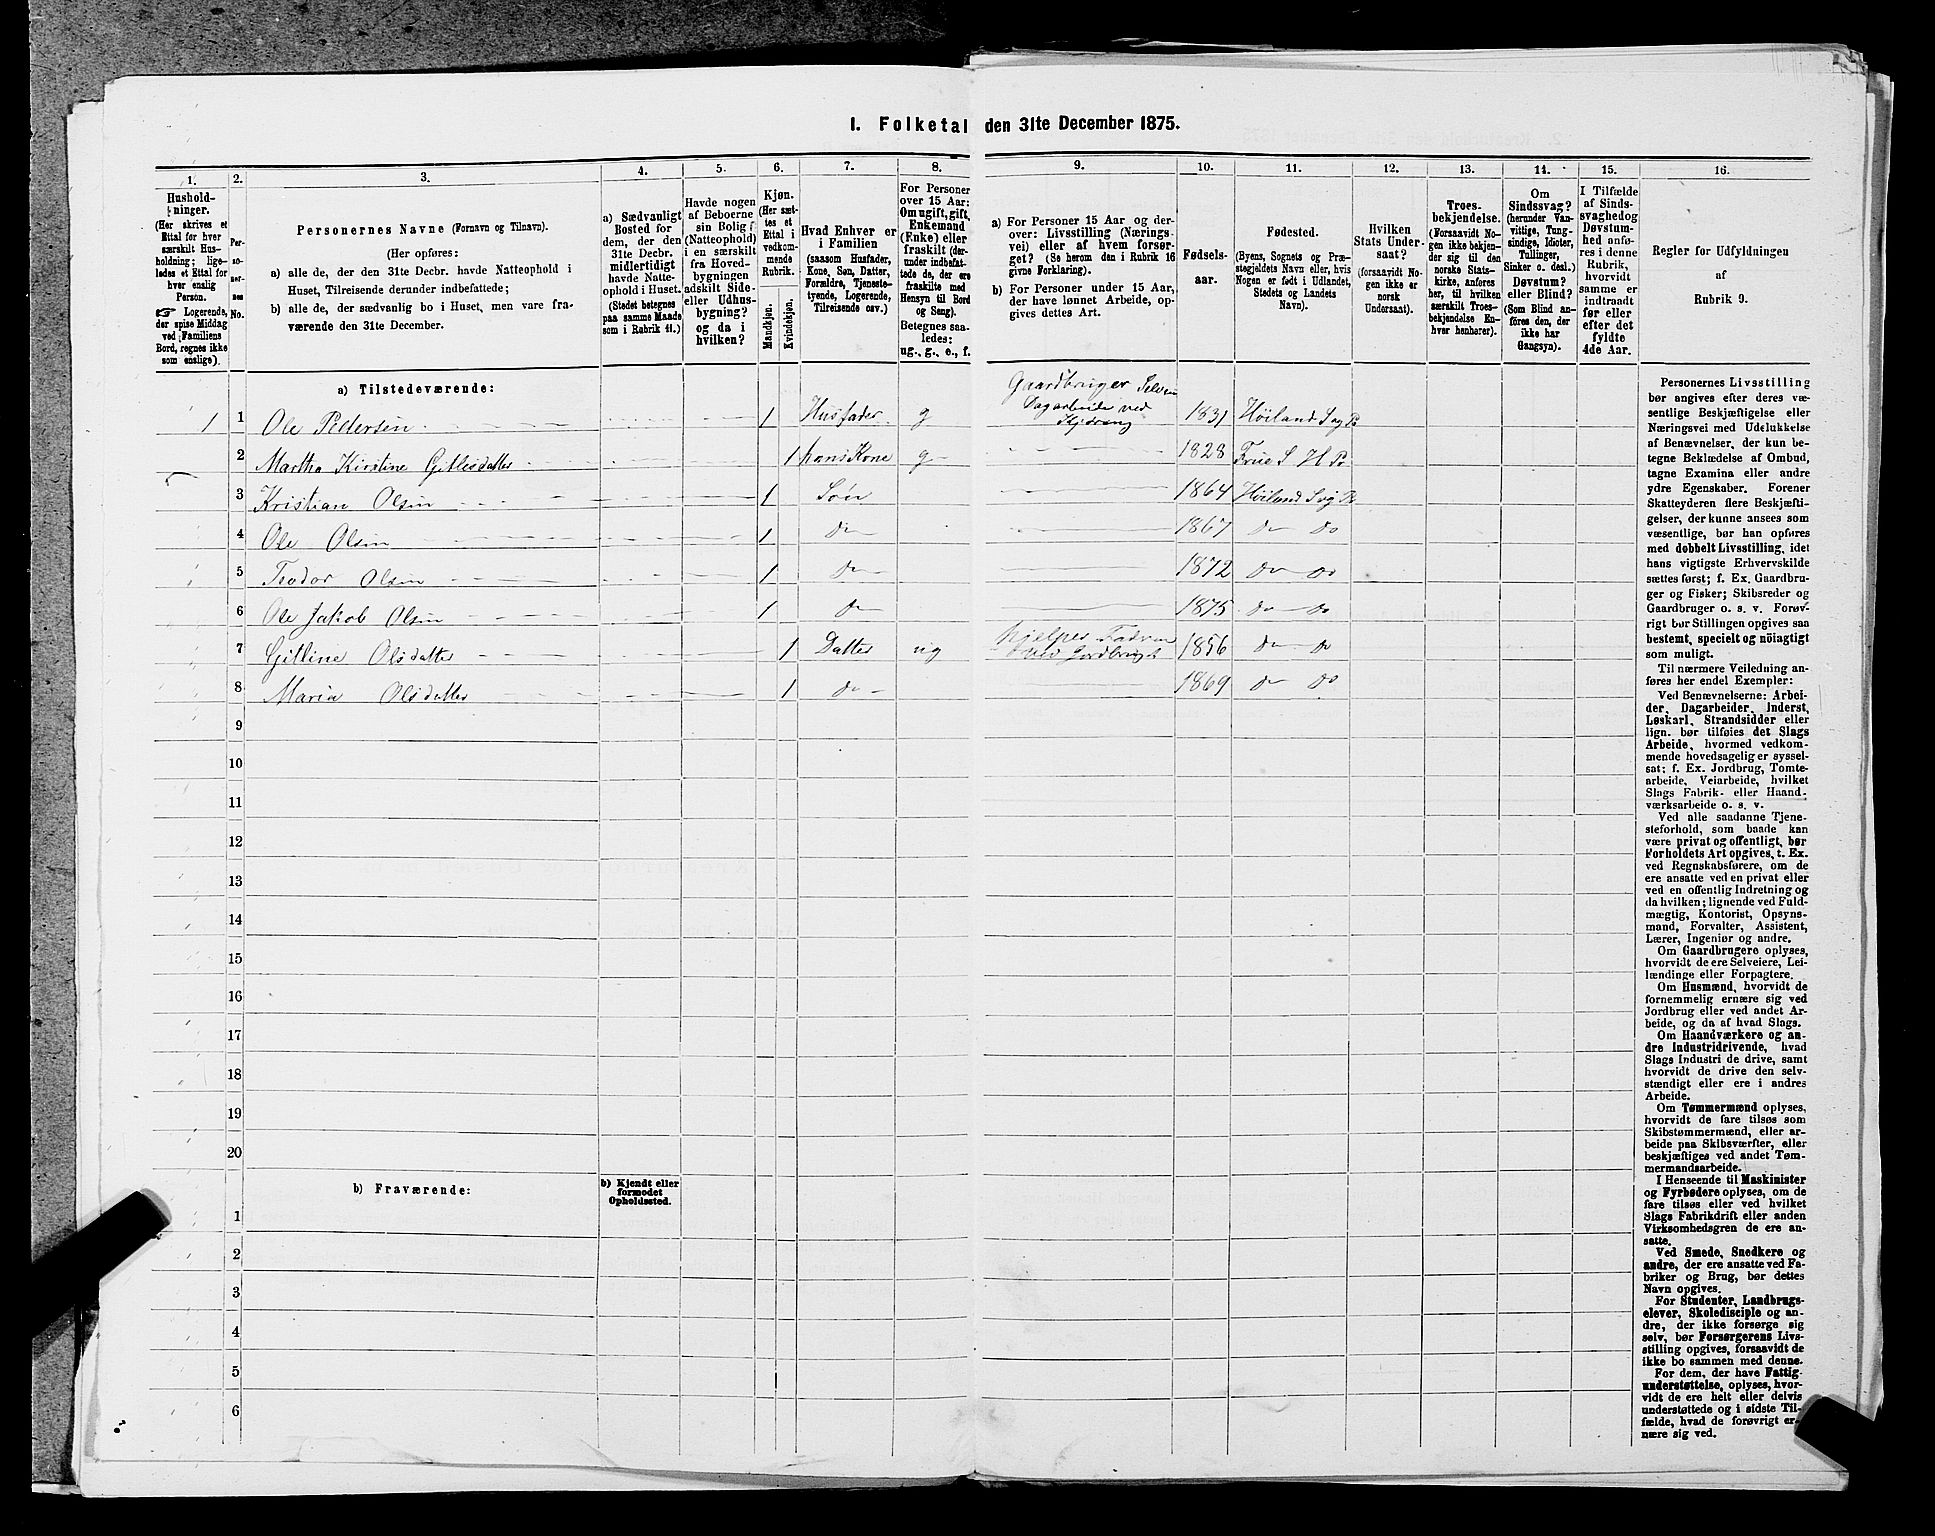 1. Folketal den 31te December 1875.
1.
Hushold-
ninger.
(Her skrives et
Ettal for hver
særskilt Hus-
holdning; lige-
ledes et Ettal for
hver enslig
Person.
☞ Logerende,
der spise Middag
ved Familiens
Bord, regnes ikke
som enslige).
2.
Per-
so-
ner-
nes
No.
3.
Personernes Navne (Fornavn og Tilnavn).
(Her opføres:
a) alle de, der den 31te Decbr. havde Natteophold i
Huset, Tilreisende derunder indbefattede;
b) alle de, der sædvanlig bo i Huset, men vare fra-
værende den 31te December.
4.
a) Sædvanligt
Bosted for
dem, der den
31te Decbr.
midlertidigt
havde Natte-
ophold i Huset.
(Stedet betegnes
paa samme Maade
som i Rubrik 11.)
5.
Havde nogen
af Beboerne
sin Bolig
(Natteophold)
i en særskilt
fra Hoved-
bygningen
adskilt Side-
eller Udhus-
bygning?
og da i
hvilken?
6.
Kjøn.
(Her sæt-
tes et
Ettal i
vedkom-
mende
Rubrik.
Mandkjøn.
Kvindekjøn.
7.
Hvad Enhver er
i Familien
(saasom Husfader,
Kone, Søn, Datter,
Forældre, Tjeneste-
tyende, Logerende,
Tilreisende osv.)
8.
For Personer
over 15 Aar:
Om ugift, gift,
Enkemand
(Enke) eller
fraskilt (der-
under indbefat-
tede de, der ere
fraskilte med
Hensyn til Bord
og Seng).
Betegnes saa-
ledes:
ug., g., e., f.
9.
a) For Personer 15 Aar og der-
over: Livsstilling (Nærings-
vei) eller af hvem forsør-
get? (Se herom den i Rubrik 16
givne Forklaring).
b) For Personer under 15 Aar,
der have lønnet Arbeide, op-
gives dettes Art.
10.
Fødsels-
aar.
11.
Fødested.
(Byens, Sognets og Præ-
stegjeldets Navn eller, hvis
Nogen er født i Udlandet,
Stedets og Landets
Navn).
12.
Hvilken
Stats Under-
saat?
(forsaavidt No-
gen ikke er
norsk
Undersaat).
13.
Troes-
bekjendelse.
(Forsaavidt No-
gen ikke bekjen-
der sig til den
norske Stats-
kirke, anføres
her, til hvilken
særskilt Troes-
bekjendelse En-
hver henhører).
14.
Om
Sindssvag?
(herunder Van-
vittige, Tung-
sindige, Idioter,
Tullinger,
Sinker o. desl.)
Døvstum?
eller Blind?
(Som Blind an-
føres den, der
ikke har
Gangsyn).
15.
I Tilfælde
af Sinds-
svaghed og
Døvstum-
hed anfø-
res i denne
Rubrik,
hvorvidt
samme er
indtraadt
før eller
efter det
fyldte
4de Aar.
16.
Regler for Udfyldningen
af
Rubrik 9.
a) Tilstedeværende:
1 1 Ole Pedersen 1 Husfader g Gaardbruger Dagarbeide ved 1831 Høiland
2 Martha Kirstine Gitlesdatter 1 hans Kone g 1828
3 Kristian Olsen 1 Søn 1864 Høiland
4 Ole Olsen 1 do 1867 do do
5 Teodor Olsen 1 do 1872 do do
6 Ole Jakob Olsen 1 do 1875 do do
7 Gitline Olsdatter 1 Datter ug hjelper Faderen ved Jordbruget 1856 do do
8 Maria Olsdatter 1 do 1869 do do
9
10
11
12
13
14
15
16
17
18
19
20
b) Fraværende:
b) Kjendt eller
formodet
Opholdssted.
1
2
3
4
5
6
Personernes Livsstilling
bør angives efter deres væ-
sentlige Beskjæftigelse eller
Næringsvei med Udelukkelse
af Benævnelser, der kun be-
tegne Beklædelse af Ombud,
tagne Examina eller andre
ydre Egenskaber. Forener
Skatteyderen flere Beskjæfti-
gelser, der kunne ansees som
væsentlige, bør han opføres
med dobbelt Livsstilling, idet
hans vigtigste Erhvervskilde
sættes først; f. Ex. Gaardbru-
ger og Fisker; Skibsreder og
Gaardbruger o. s. v. Forøv-
rigt bør Stillingen opgives saa
bestemt, specielt og nøiagtigt
som muligt.
Til nærmere Veiledning an-
føres her endel Exempler:
Ved Benævnelserne: Arbei-
der, Dagarbeider, Inderst,
Løskarl, Strandsidder eller
lign. bør tilføies det Slags
Arbeide, hvormed vedkom-
mende hovedsagelig er syssel-
sat; f. Ex. Jordbrug, Tomte-
arbeide, Veiarbeide, hvilket
Slags Fabrik- eller Haand-
værksarbeide o. s. v.
Ved alle saadanne Tjene-
steforhold, som baade kan
være privat og offentligt, bør
Forholdets Art opgives, t. Ex.
ved Regnskabsførere, om de
ere ansatte ved en privat eller
ved en offentlig Indretning og
da hvilken; lignende ved Fuld-
mægtig, Kontorist, Opsyns-
mand, Forvalter, Assistent,
Lærer, Ingeniør og andre.
Om Gaardbrugere oplyses,
hvorvidt de ere Selveiere, Lei-
lændinge eller Forpagtere.
Om Husmænd, hvorvidt de
fornemmelig ernære sig ved
Jordbrug eller ved andet Ar-
beide, og da af hvad Slags.
Om Haandværkere og an-
dre Industridrivende, hvad
Slags Industri de drive, samt
hvorvidt de drive den selv-
stændigt eller ere i andres
Arbeide.
Om Tømmermænd oplyses,
hvorvidt de fare tilsøs som
Skibstømmermænd, eller ar-
beide paa Skibsværfter, eller
beskjæftiges ved andet Tøm-
mermandsarbeide.
I Henseende til Maskinister
og Fyrbødere oplyses, om de
fare tilsøs eller ved hvilket
Slags Fabrikdrift eller anden
Virksomhedsgren de ere an-
satte.
Ved Smede, Snedkere og
andre, der ere ansatte ved Fa-
briker og Brug, bør dettes
Navn opgives.
For Studenter, Landbrugs-
elever, Skoledisciple og an-
dre, der ikke forsørge sig
selv, bør Forsørgerens Livs-
stilling opgives, forsaavidt de
ikke bo sammen med denne.
For dem, der have Fattig-
understøttelse, oplyses, hvor-
vidt de ere helt eller delvis
understøttede og i sidste Til-
fælde, hvad de forøvrigt er-
nære sig ved.